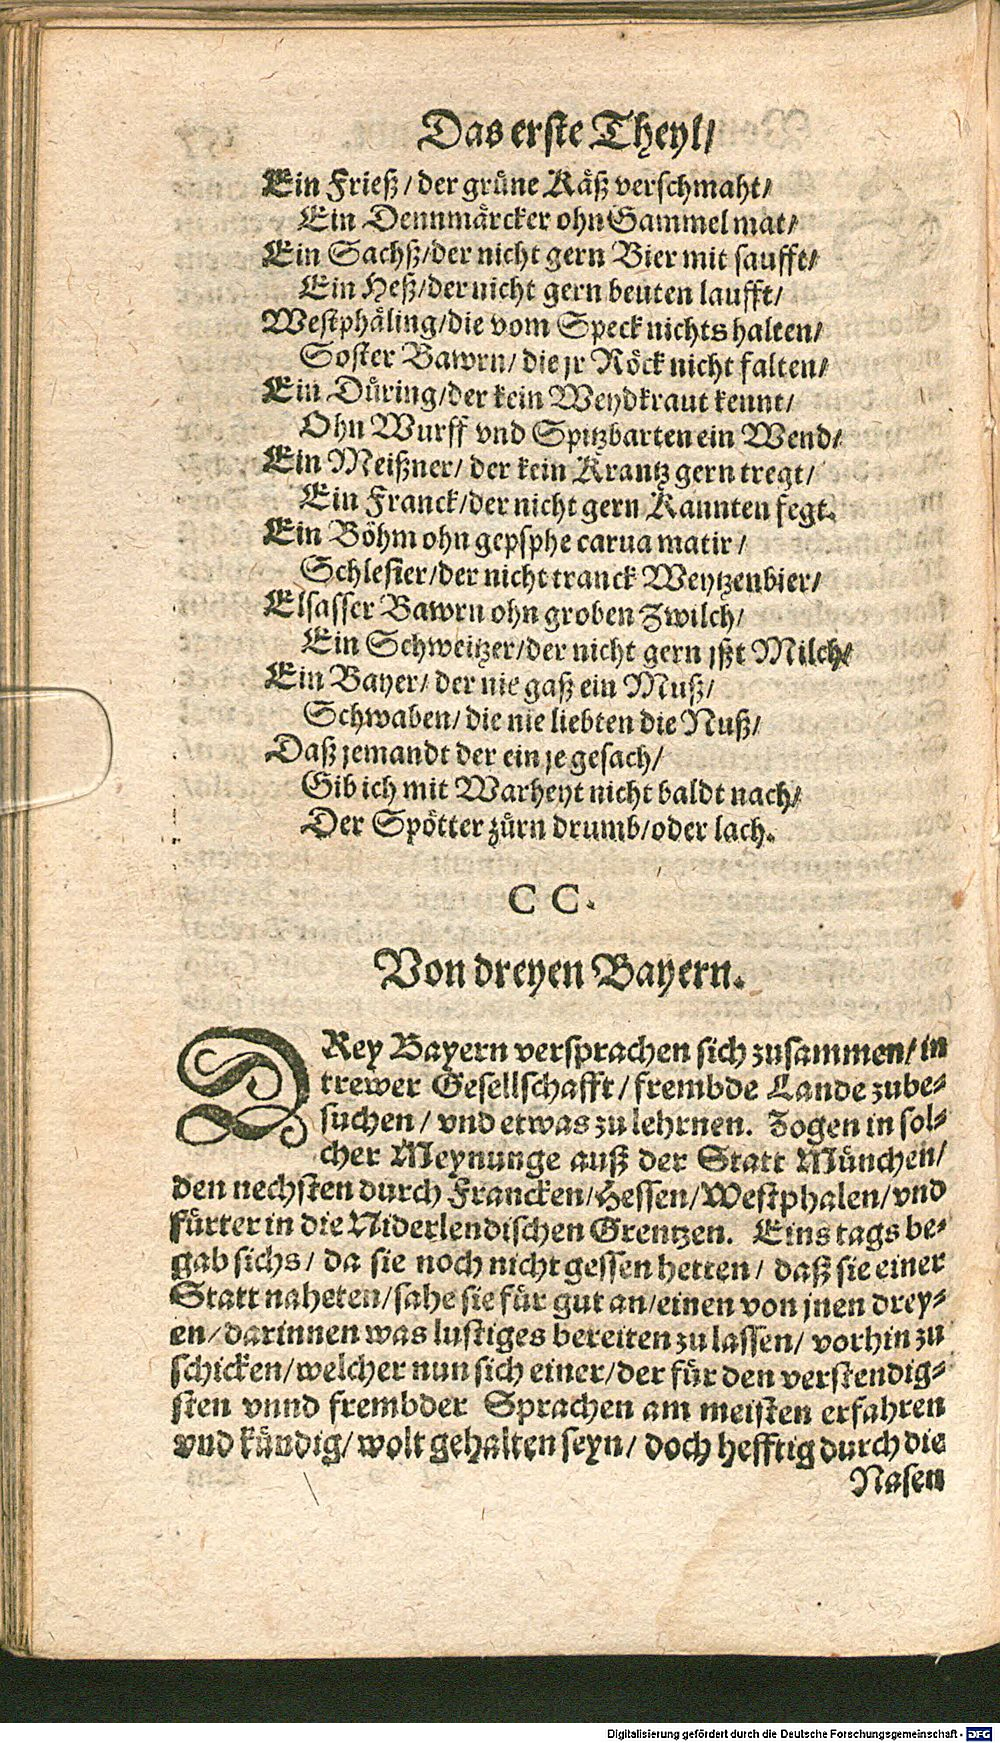 Das erste Theyl/
Ein Frieß / der grüne Käß verschmaht/
Ein Dennmärcker ohn Gammel mat/
Ein Sachß/der nicht gern Bier mit saufft/
Ein Heß/der nicht gern beuten laufft/
Westphäling/die vom Speck nichts halten/
Soster Bawrn/ die jr Röck nicht falten/
Ein Düring/der kein Weydkraut kennt/
Ohn Wurff vnd Spitzbarten ein Wend/
Ein Meißner/ der kein Krantz gern tregt/
Ein Franck/der nicht gern Kannten fegt.
Ein Böhm ohn gepsphe carua matir /
Schlesier/der nicht tranck Weytzenbier/
Elsasser Bawrn ohn groben Zwilch/
Ein Schweitzer/der nicht gern jßt Milch/
Ein Bayer/ der nie gaß ein Muß/
Schwaben/ die nie liebten die Nuß/
Daß jemandt der ein je gesach/
Gib ich mit Warheyt nicht baldt nach/
Der Spötter zürn drumb/oder lach.
C C.
Von dreyen Bayern.
DRey Bayern versprachen sich zusammen/ in
trewer Gesellschafft / frembde Lande zube-
suchen / vnd etwas zu lehrnen. Zogen in sol-
cher Meynunge auß der Statt München/
den nechsten durch Francken/Hessen/Westphalen/vnd
fürter in die Niderlendischen Grentzen. Eins tags be-
gab sichs / da sie noch nicht gessen hetten / daß sie einer
Statt naheten/sahe sie für gut an/einen von jnen drey-
en/darinnen was lustiges bereiten zu lassen/ vorhin zu
schicken/welcher nun sich einer/der für den verstendig-
sten vnnd frembder Sprachen am meisten erfahren
vnd kündig/ wolt gehalten seyn/ doch hefftig durch die
Nasen
Digitalisierung gefördert durch die Deutsche Forschungsgemeinschaft - DFG